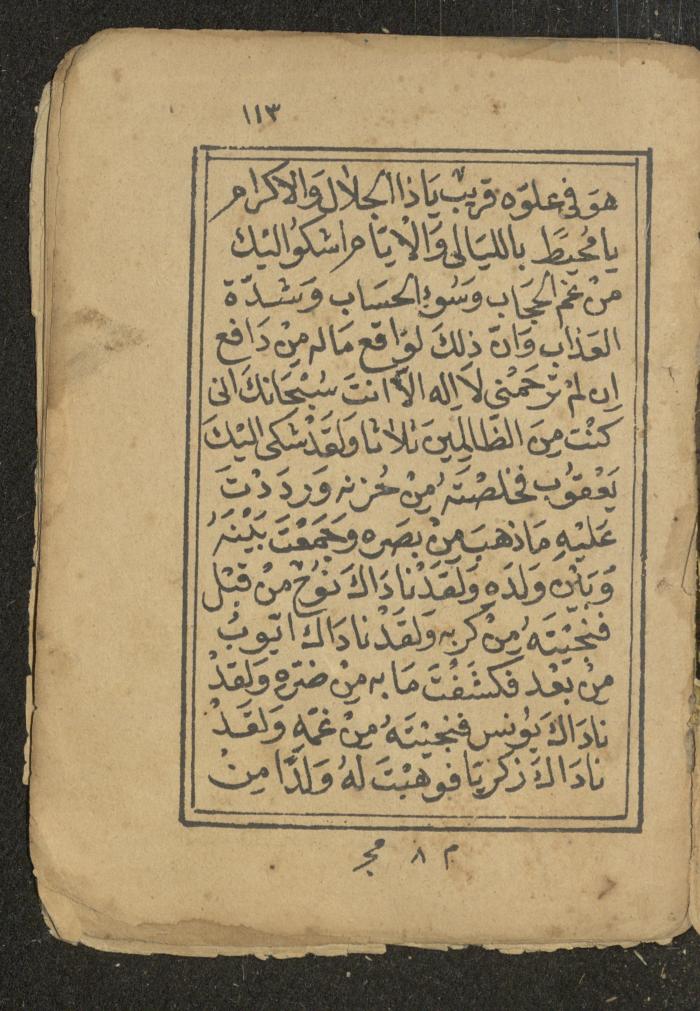 ١١٣
هوَ فى علوّه قريبٌ يَاذا الجلال وَالاكرام
يا مُحيطً باللّيَالى وَالْايّام اشكوُا اليْك
منْ غم الحجَاب وسَوءِ الحسَاب وَشدّة
العَذاب وَانّ ذلِكَ لوَاقع مَاله مِنْ دَافع
اِن لمْ ترْحَمْنى لَا اِله الّا انتَ سُبْحَانكَ انى
كنْت مِنَ الظّالمِينَ ثلاثا وَلقَدْ شكى اليْكَ
يَعْقوُب فخلصْتَهُ مِنْ حُزنه وَردَدْتَ
عَليْهِ مَا ذهبَ مِنْ بصَره وجَمَعْتَ بَيْنَهُ
وَبَيْن وَلدَه وَلقَدْ نادَاكَ نوُحٌ منْ قبْل
فنجيْتَهُ مِنْ كربه وَلقَدْ نادَاكَ ايّوبُ
مِنْ بعْد فكشَفْتَ مَا به مِنْ ضرّه وَلقدْ
نادَاكَ يوُنس فنجيْتَهُ مِنْ غمّه وَلقَدْ
نادَاكَ زكريّا فوَهبْتَ لهُ وَلَدًا مِنْ
م ٨